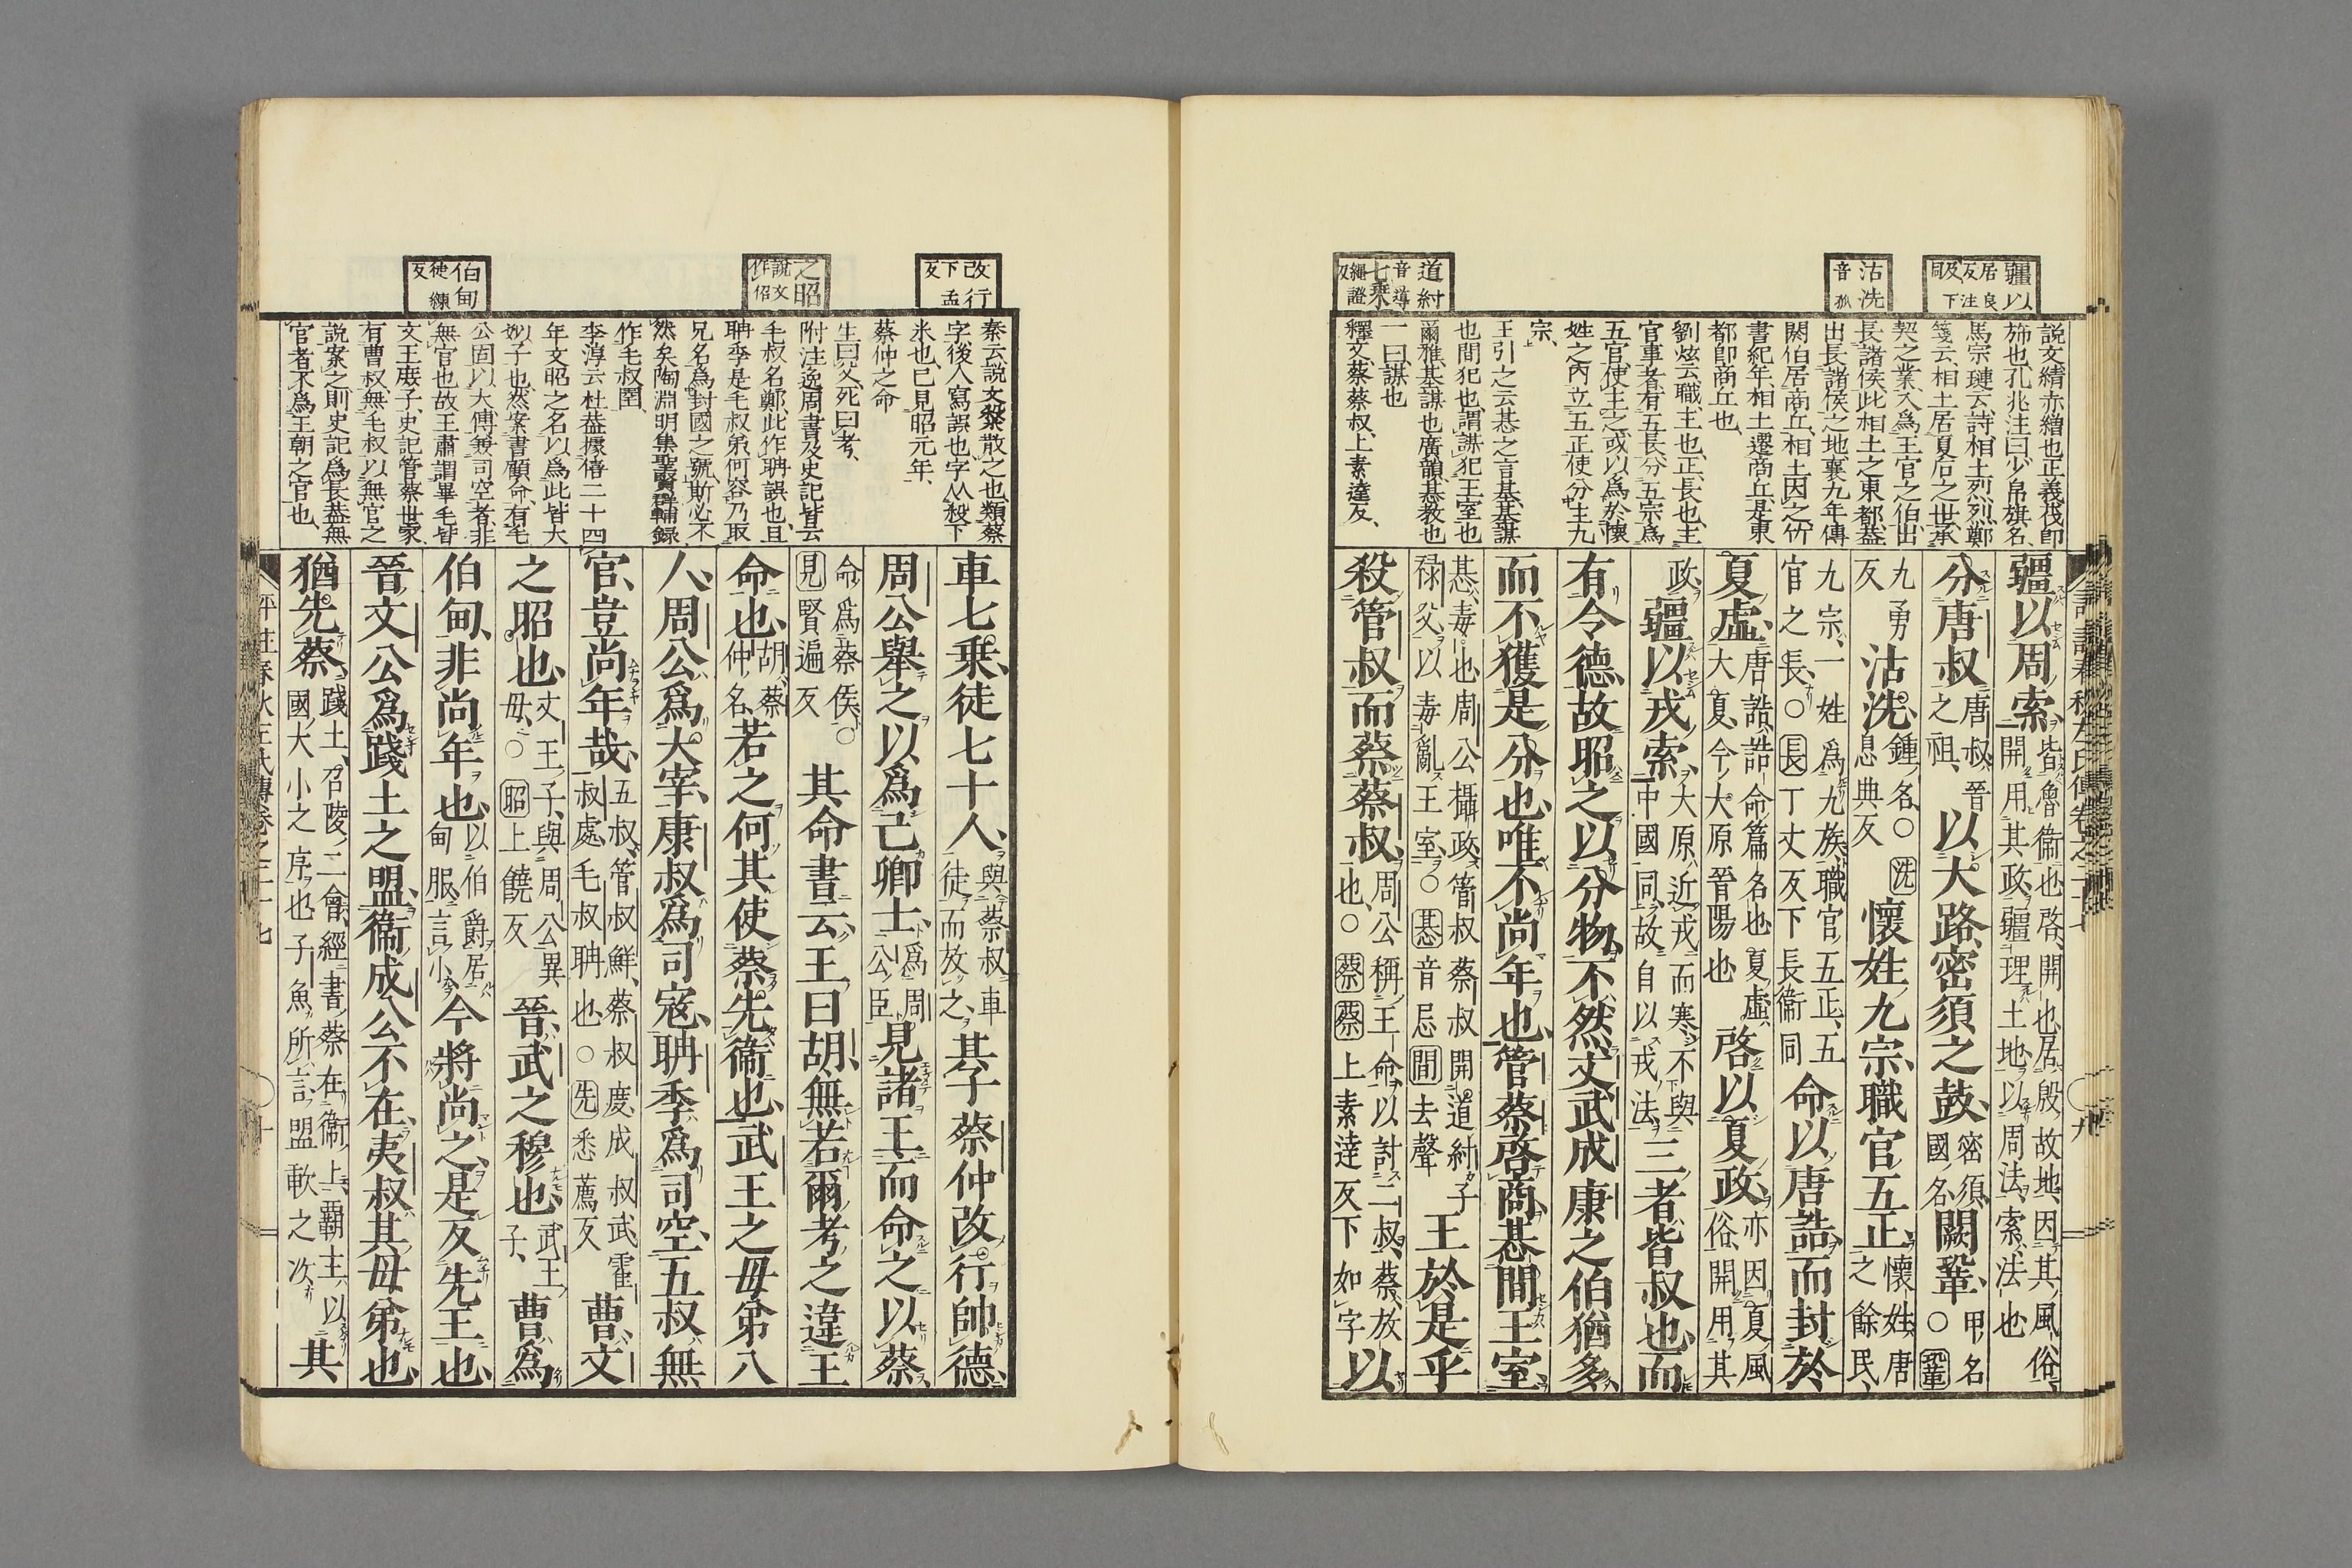 疆以
居良反注及下同
沽洗
音孤
道紂
音導
七乘
繩證反
說文綪赤繒也正義茷卽
旆也孔兆注曰少帛旗名
馬宗璉云詩相土烈烈鄭
箋云相土居夏后之世承
契之業入爲王官之伯出
長諸侯此相土之東都蓋
出長諸侯之地襄九年傳
閼伯居商丘相土因之竹
書紀年相土遷商丘是東
都卽商丘也
劉炫云職主也正長也主
官事者有五長分五宗爲
五官使主之或以爲於懷
姓之內立五正使分主九
宗
王引之云惎之言基基謀
也間犯也謂謀犯王室也
爾雅基謀也廣韻惎敎也
一曰謀也
釋文蔡蔡叔上素達反
疆以周索皆魯衛也啓開也居殷故地因其風俗開用其政疆理土地以周法索法也
分唐叔唐叔晉之祖以大路密須之鼓密須國名闕鞏甲名○鞏
九勇反沽洗鍾名○洗息典反懷姓九宗職官五正懷姓唐之餘民
九宗一姓爲九族職官五正五官之長○長丁丈反下長衛同命以唐誥而封於
夏虛唐誥誥命篇名也夏虛大夏今大原晉陽也啓以夏政亦因夏風俗開用其
政疆以戎索大原近戎而寒不與中國同故自以戎法三者皆叔也而
有令德故昭之以分物不然文武成康之伯猶多
而不獲是分也唯不尚年也管蔡啓商惎間王室
惎毒也周公攝政管叔蔡叔開道紂子祿父以毒亂王室○惎音忌間去聲王於是乎
殺管叔而蔡蔡叔周公稱王命以討二叔蔡放也○蔡蔡上素達反下如字以
改行
下孟反
之昭
說文作佋
伯甸
徒練反
秦云說文䊝散之也類蔡
字後人寫誤也字从殺下
米也已見昭元年
蔡仲之命
生曰父死曰考
附注逸周書及史記皆云
毛叔名鄭此作聃誤也且
聃季是毛叔弟何容乃取
兄名爲封國之號斯必不
然矣陶淵明集聖賢羣輔錄
作毛叔圉
李淳云杜蓋據僖二十四
年文昭之名以爲此皆大
姒子也然案書顧命有毛
公固以大傅兼司空者非
無官也故王肅謂畢毛皆
文王庶子史記管蔡世家
有曹叔無毛叔以無官之
說案之則史記爲長蓋無
官者不爲王朝之官也
車七乘徒七十人與蔡叔車徒而放之其子蔡仲改行帥德
周公舉之以爲己卿士爲周公臣見諸王而命之以蔡
命爲蔡侯○見賢遍反其命書云王曰胡無若爾考之違王
命也胡蔡仲名若之何其使蔡先衛也武王之母弟八
人周公爲大宰康叔爲司寇聃季爲司空五叔無
官豈尚年哉五叔管叔鮮蔡叔度成叔武霍叔處毛叔聃也○先悉薦反曹文
之昭也文王子與周公異母○昭上饒反晉武之穆也武王子曹爲
伯甸非尚年也以伯爵居甸服言小今將尚之是反先王也
晉文公爲踐土之盟衛成公不在夷叔其母弟也
猶先蔡踐土召陵二會經書蔡在衛上霸主以國大小之序也子魚所言盟歃之次其